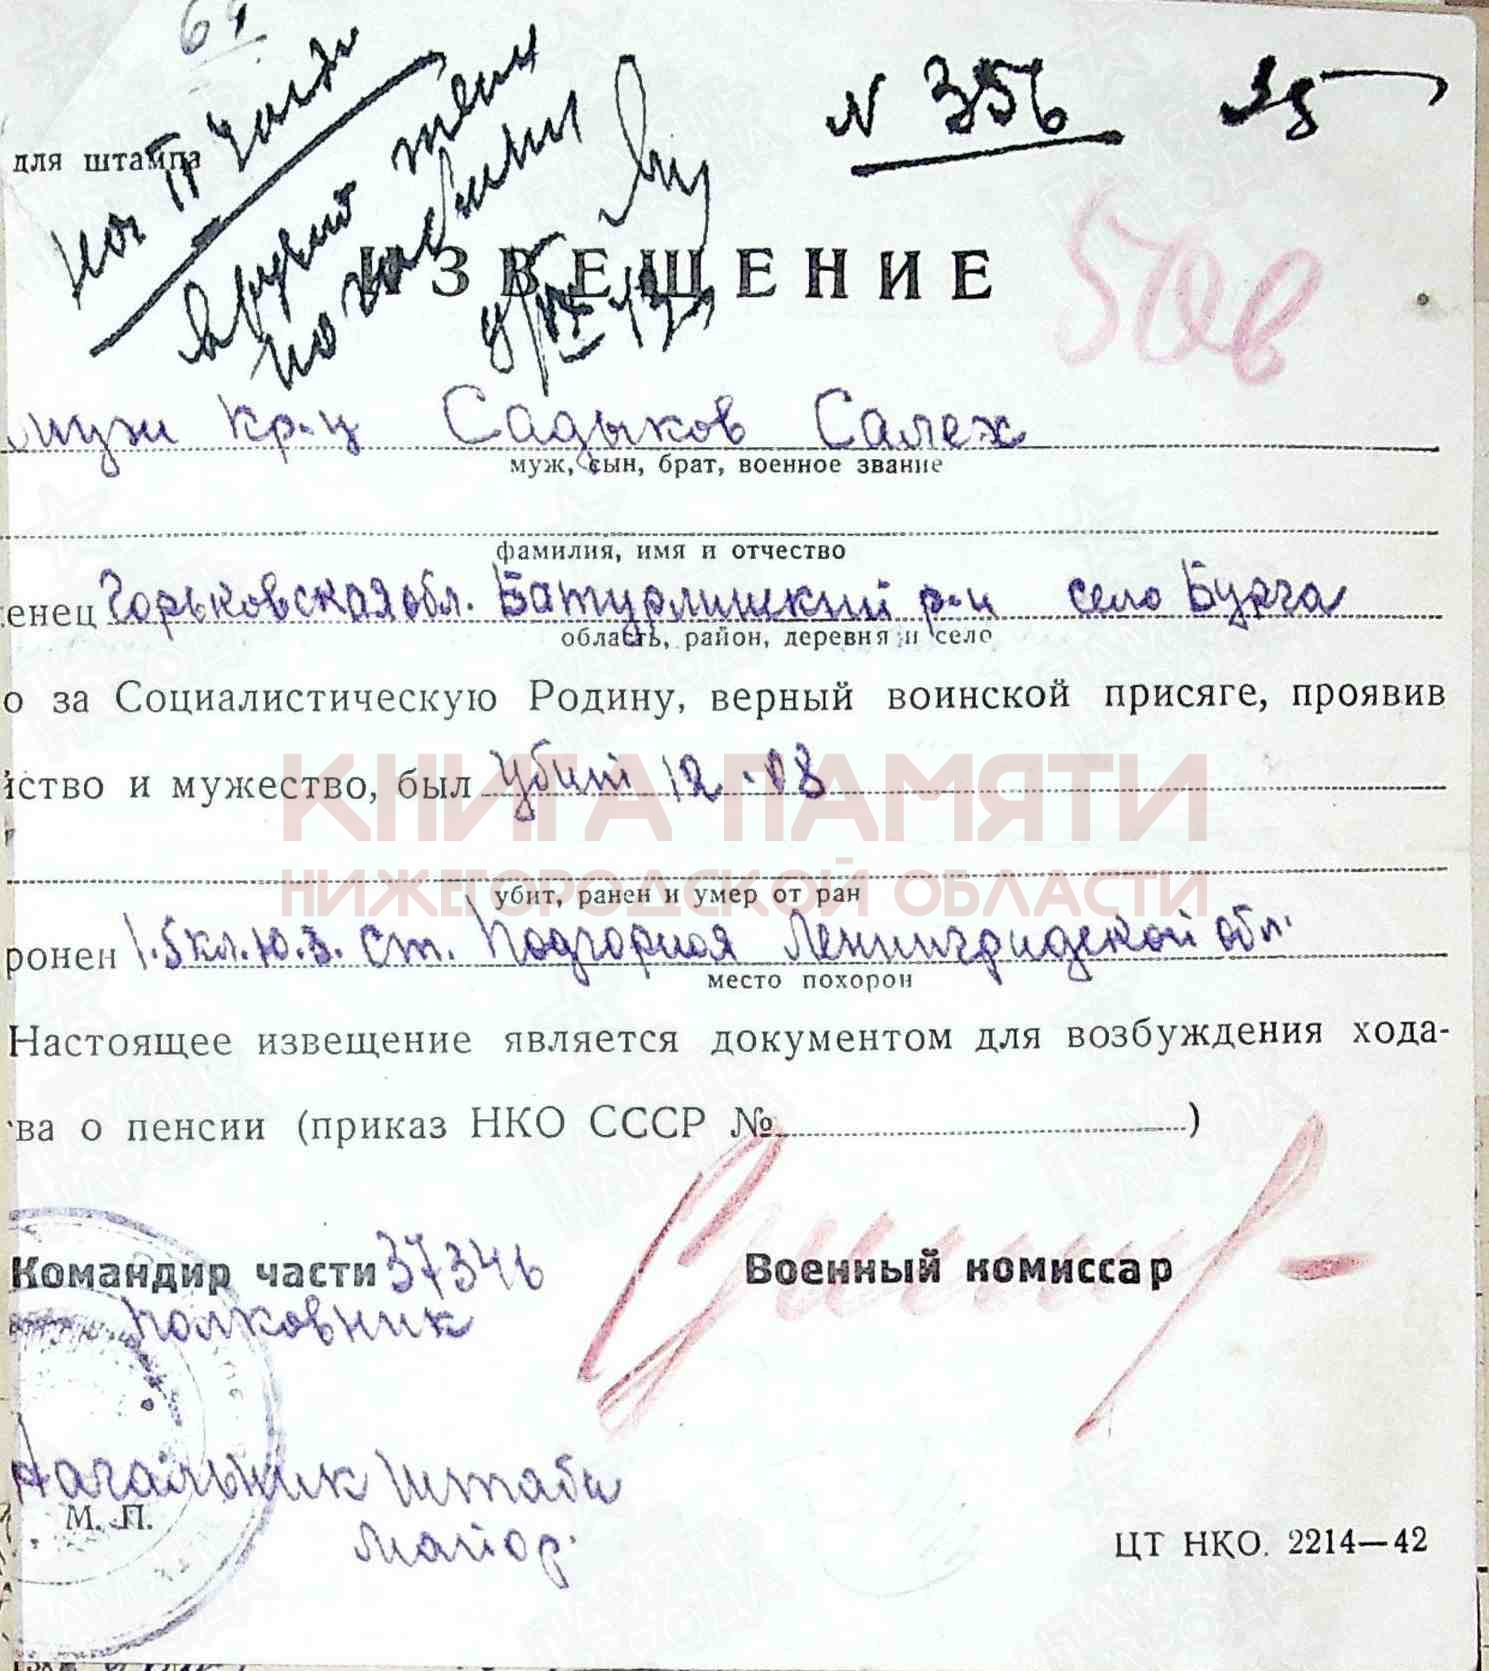 64
N 356
для штампа
на II
И З В Е Щ Е Н И Е
50в
муж кр-ц Садыков Салех
муж, сын, брат, военное звание
фамилия, имя и отчество
енец Горьковская обл. Батурлинский р-н село Бурга
область, район, деревня и село
о за Социалистическую Родину, верный воинской присяге, проявив
йство и мужество, был убит 12.08
КНИГА ПАМЯТИ
НИЖЕГОРОДСКОЙ ОБЛАСТИ
убит, ранен и умер от ран
ронен 1.5 кл. ю.з. ст. Подгорная Ленинградской обл.
место похорон
Настоящее извещение является документом для возбуждения хода-
ва о пенсии (приказ НКО СССР № )
Командир части 37346 Военный комиссар
полковник
Начальник штаба
М. П.
майор.
ЦТ НКО. 2214—42